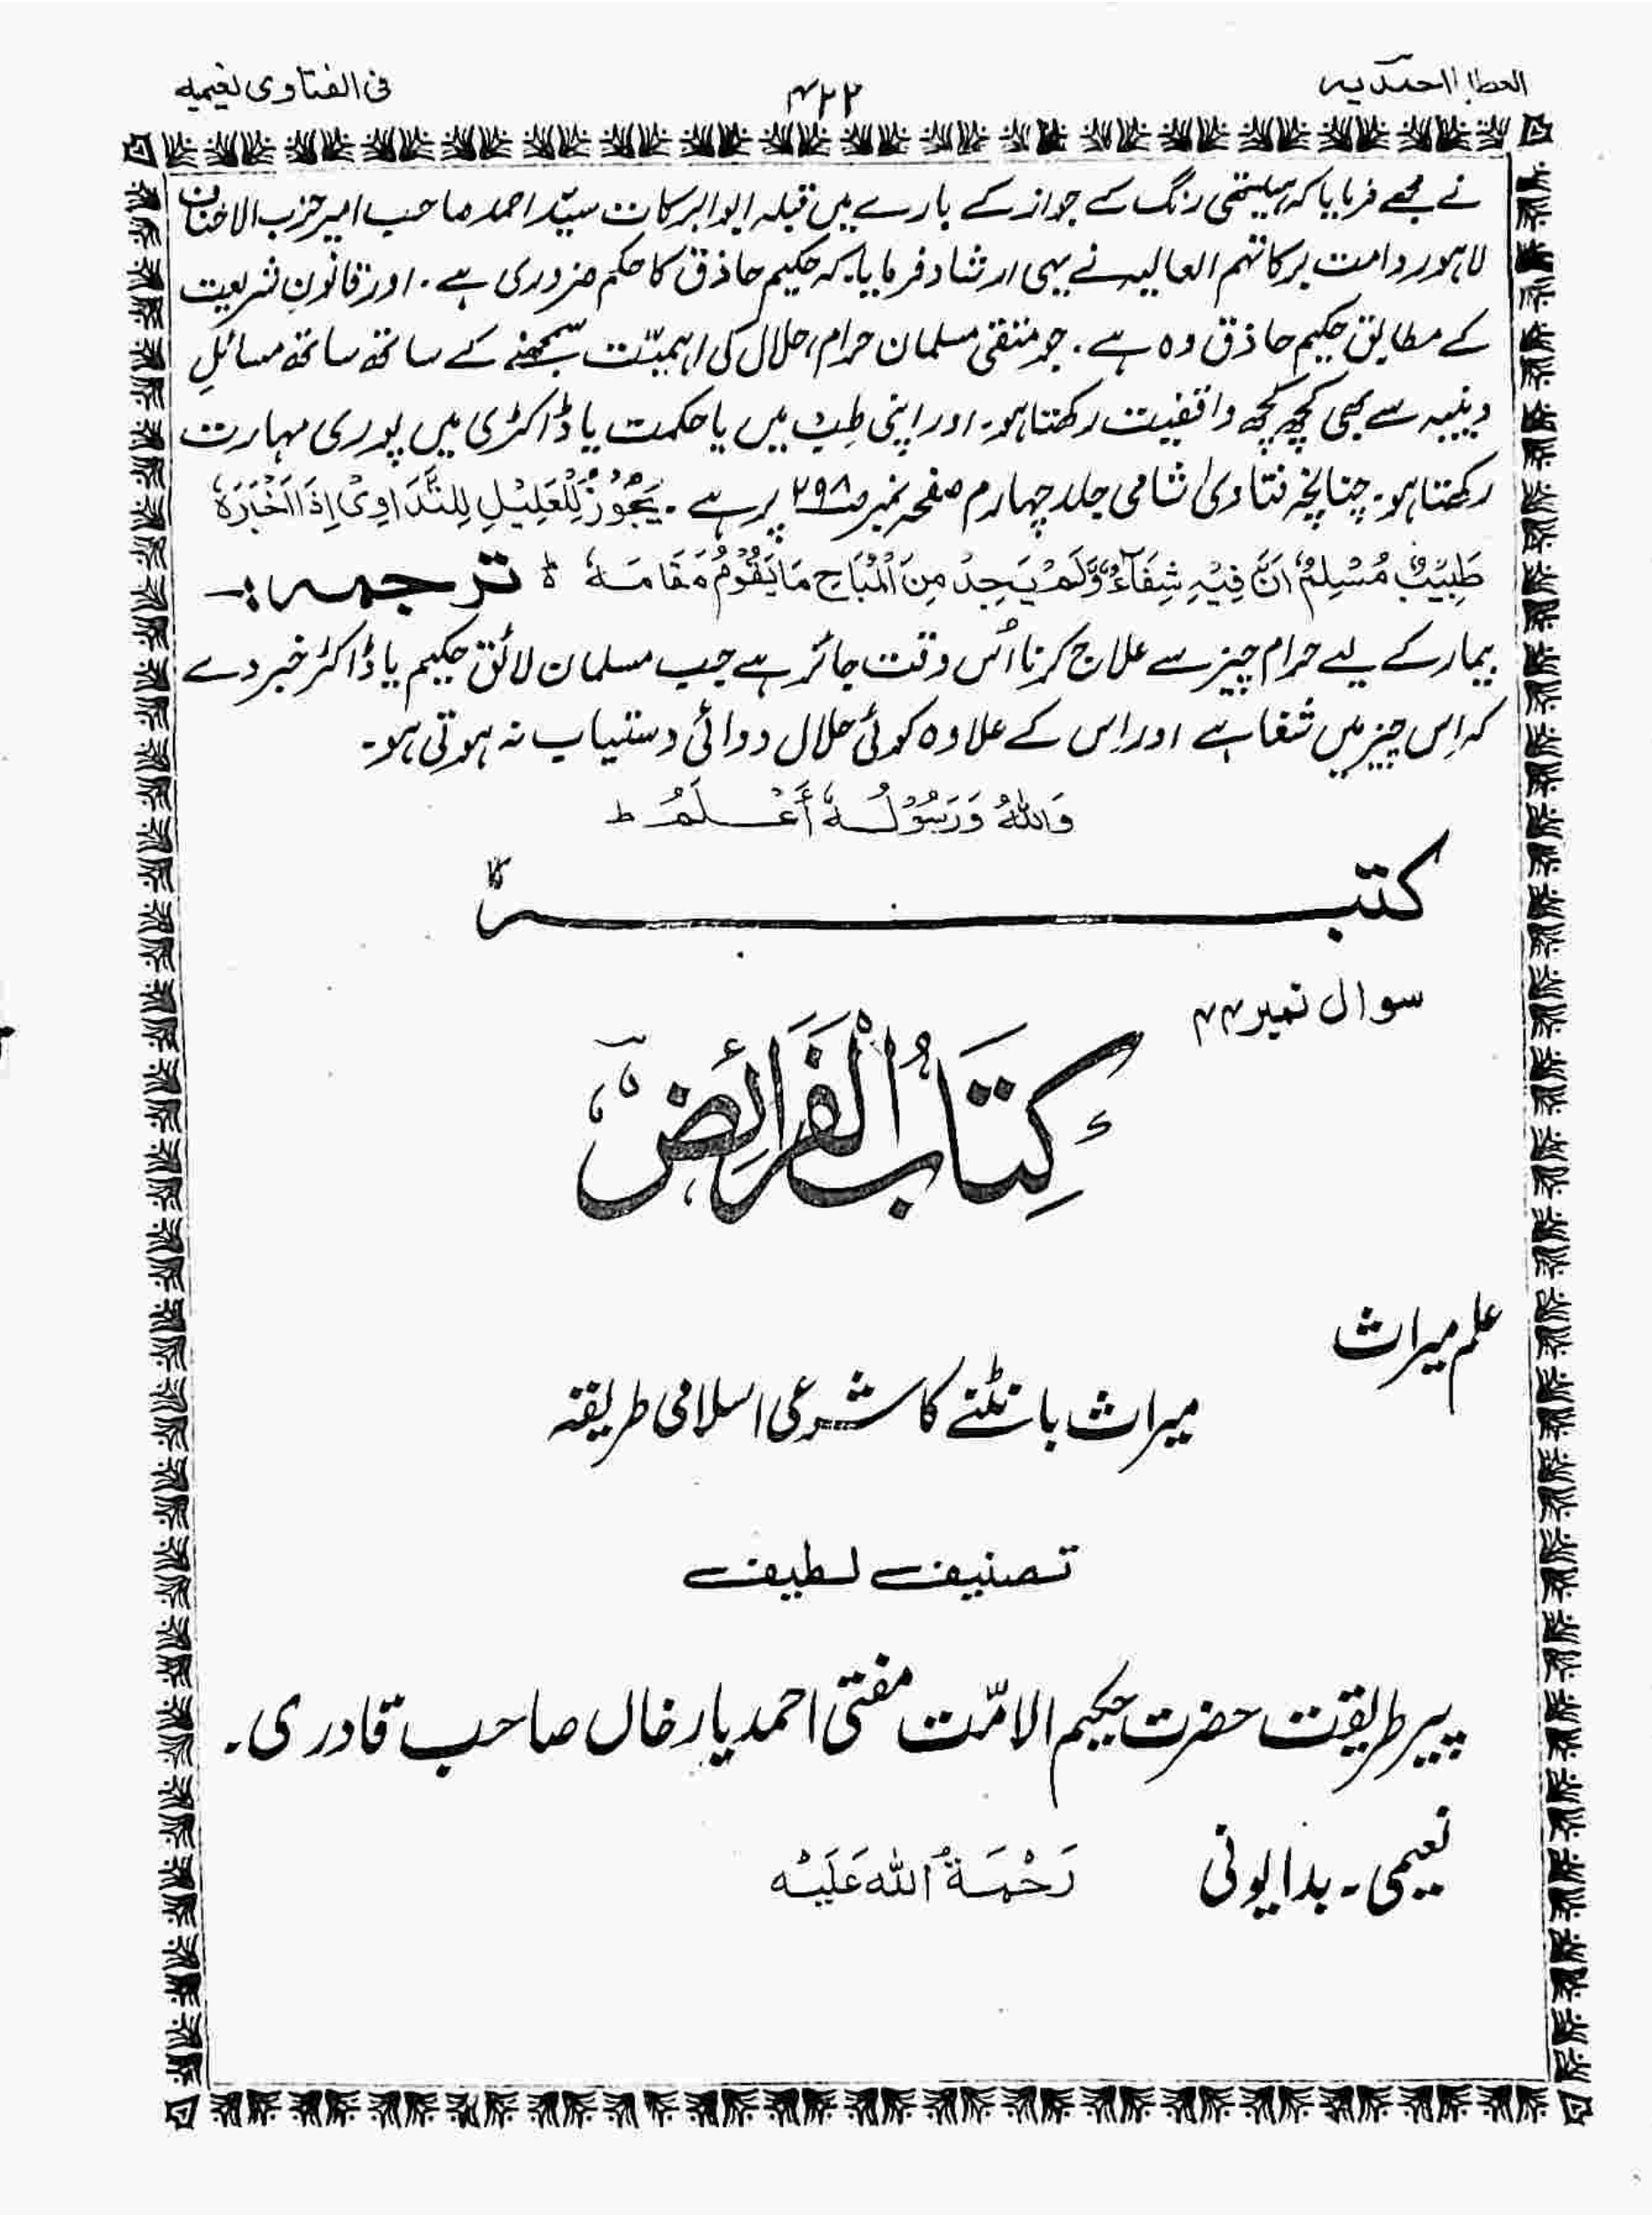 العطایا الاحمدیہ
۴۲۲
فی الفتاوی نعیمیہ
نے مجھے فرمایا کہ ہیلیتھی رنگ کے جواز کے بارے میں قبلہ ابو البرکات سیّد احمد صاحب امیر حزب الاحناف
لاہور دامت برکاتہم العالیہ نے یہی ارشاد فرمایا۔ کہ حکیم حاذق کا حکم ضروری ہے۔ اور قانونِ شریعت
کے مطابق حکیم حاذق وہ ہے۔ جو متقی مسلمان حرام، حلال کی اہمیّت سمجھنے کے ساتھ ساتھ مسائلِ
دینیہ سے بھی کچھ کچھ واقفیت رکھتا ہو۔ اور اپنی طِب میں یا حکمت یا ڈاکٹری میں پوری مہارت
رکھتا ہو۔ چنانچہ فتاویٰ شامی جلد چہارم صفحہ نمبر ص۲۹۸ پر ہے۔ یَجُوْزُ لِلْعَلِیْلِ لِلتَّدَاوِیْ اِذَا اَخْبَرَہٗ
طَبِیْبٌ مُسْلِمٌ اَنَّ فِیْہِ شِفَآءٌ وَّلَمْ یَجِدْ مِنَ الْمُبَاحِ مَا یَقُوْمُ مَقَامَہٗ ط ترجمہ :۔
بیمار کے لیے حرام چیز سے علاج کرنا اُس وقت جائز ہے جب مسلمان لائق حکیم یا ڈاکٹر خبر دے
کہ اِس چیز میں شفا ہے اور اِس کے علاوہ کوئی حلال دوائی دستیاب نہ ہوتی ہو۔
وَاللّٰہُ وَرَسُوْلُہٗ أَعْلَمُ ط
کتبہٗ
سوال نمبر ۴۴
کِتَابُ الْفَرَائِض
علم میراث
میراث بانٹنے کا شرعی اسلامی طریقہ
تصنیف لطیف
پیر طریقت حضرت حکیم الامّت مفتی احمد یار خاں صاحب قادری۔
نعیمی۔ بدایونی رَحْمَۃُ اللّٰہ عَلَیْہ